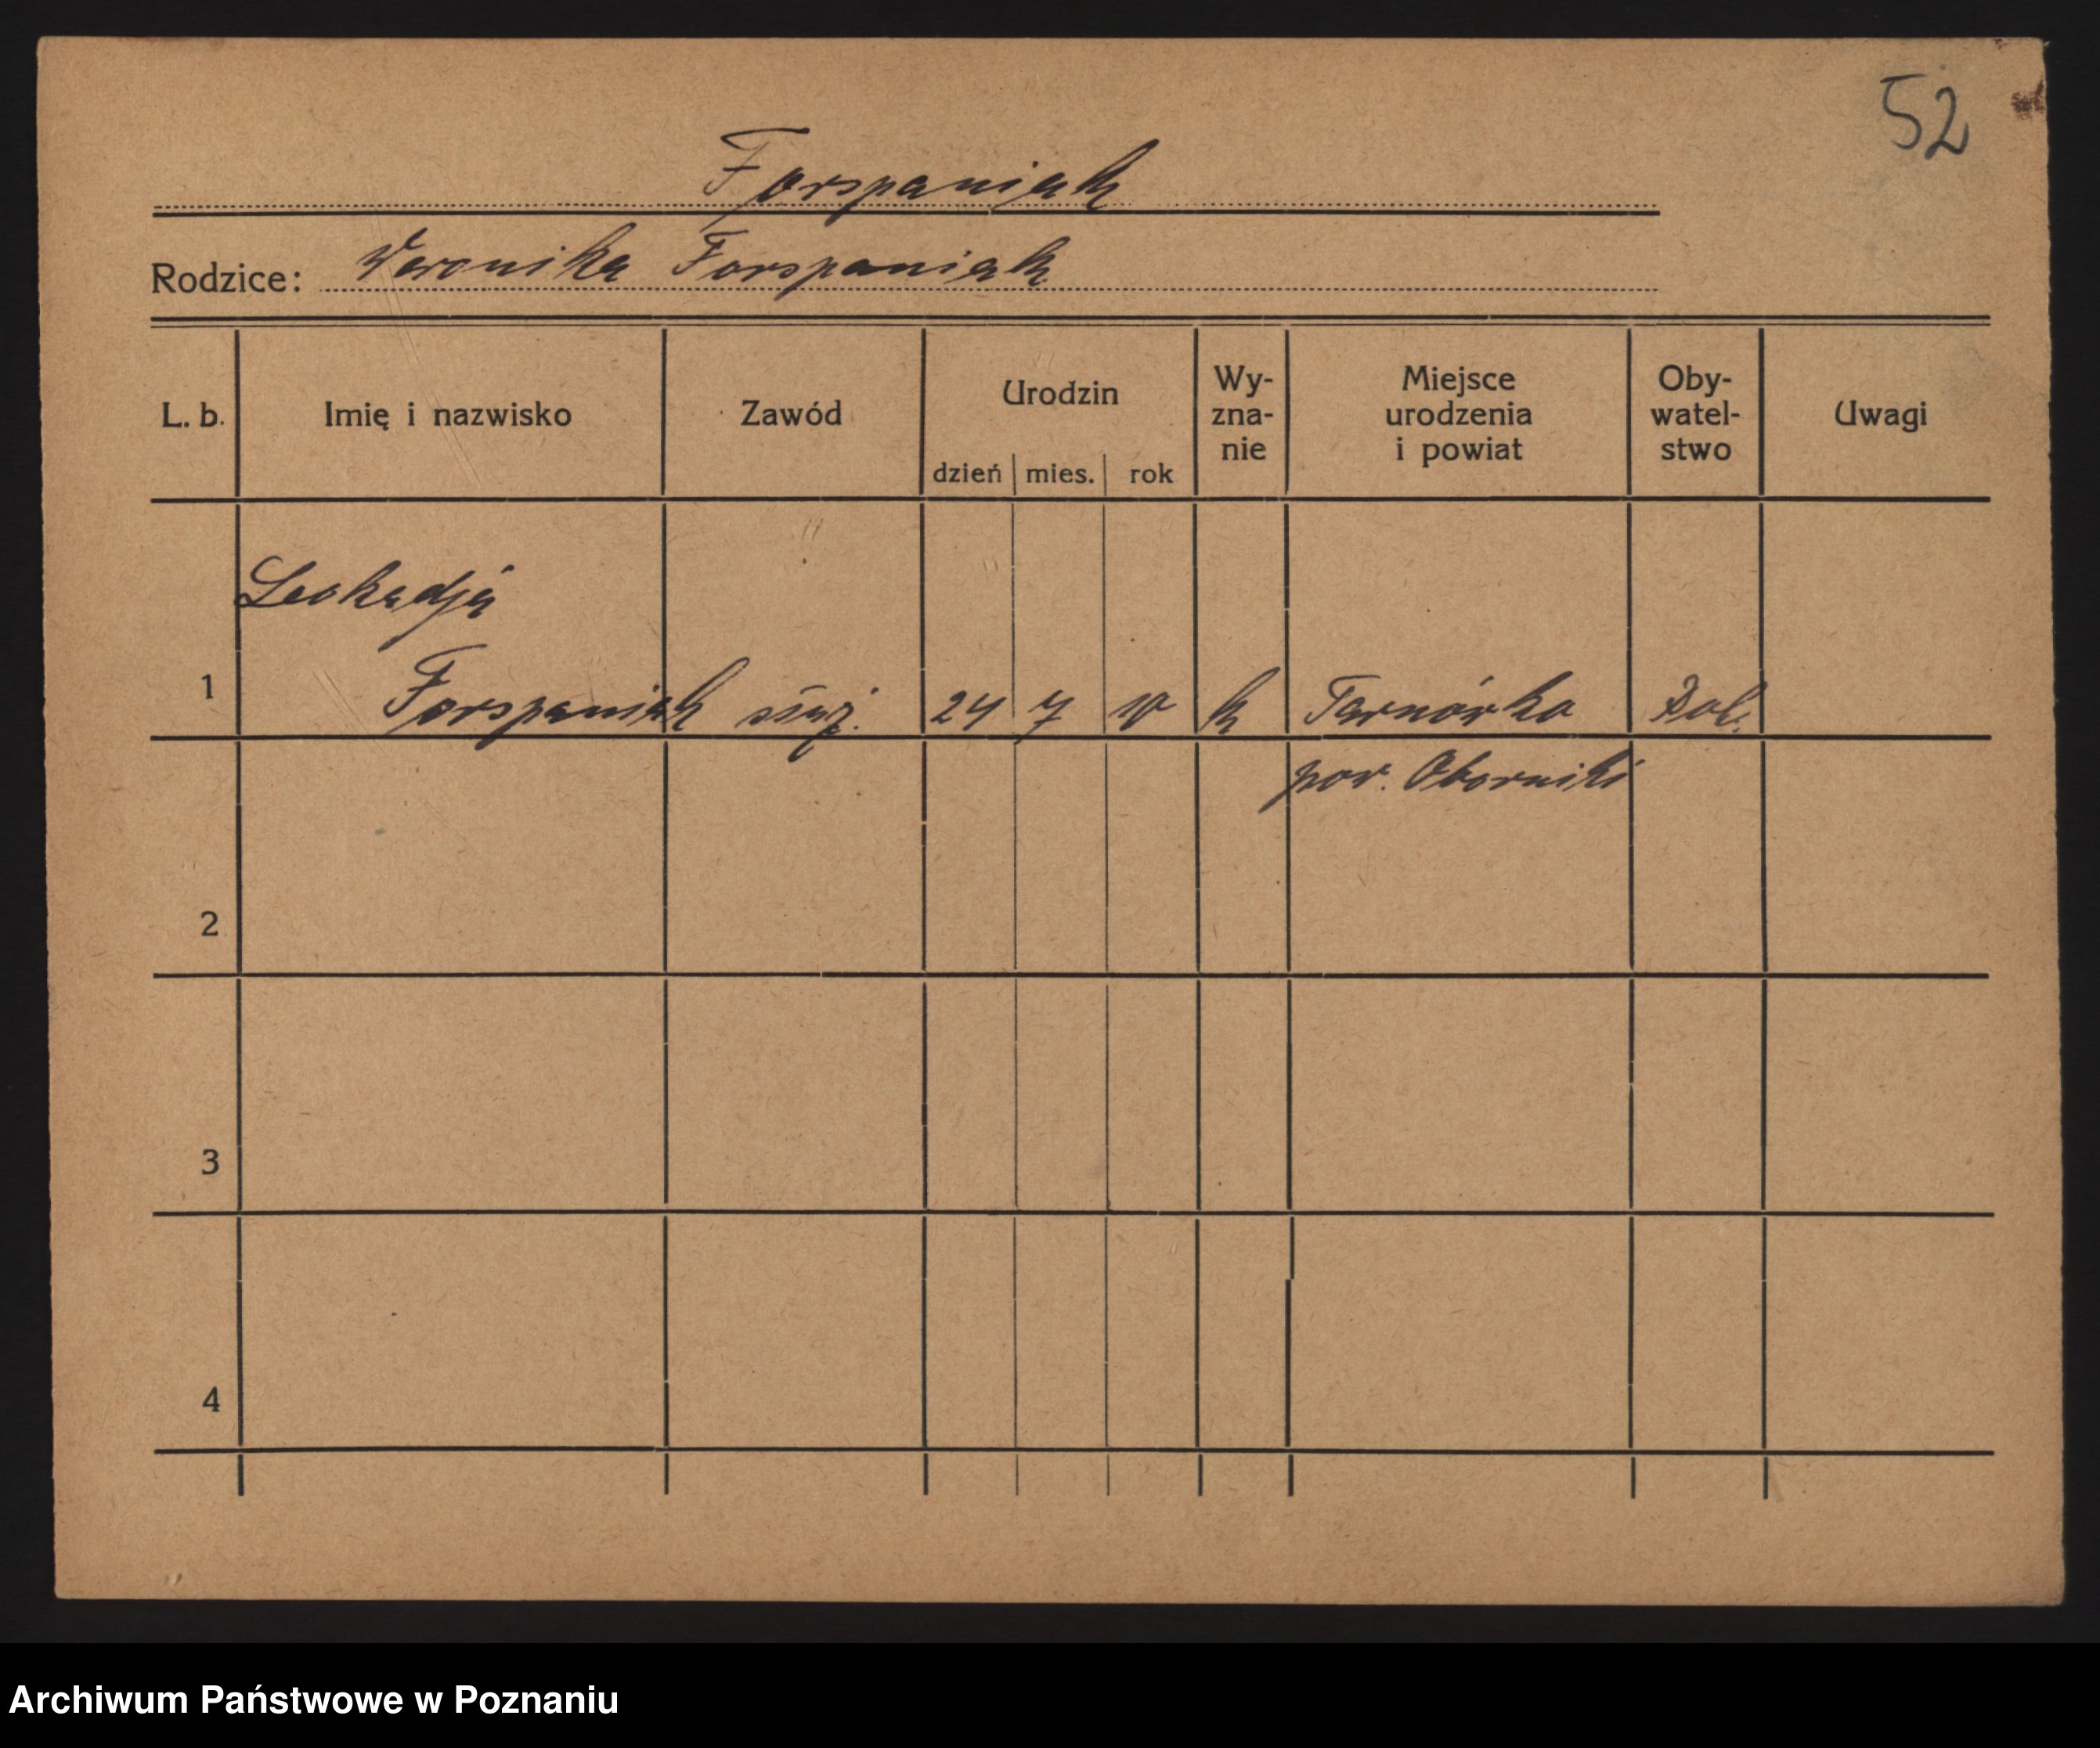 52
Forspaniak
Rodzice: Weronika Forspaniak
L. b. Imię i nazwisko Zawód Urodzin dzień mies. rok Wy-zna-nie Miejsce urodzenia i powiat Oby-watel-stwo Uwagi
Leokadja
1 Forspaniak służ. 24 7 10 k Tarnówko Pol.
pow. Oborniki
2
3
4
Archiwum Państwowe w Poznaniu